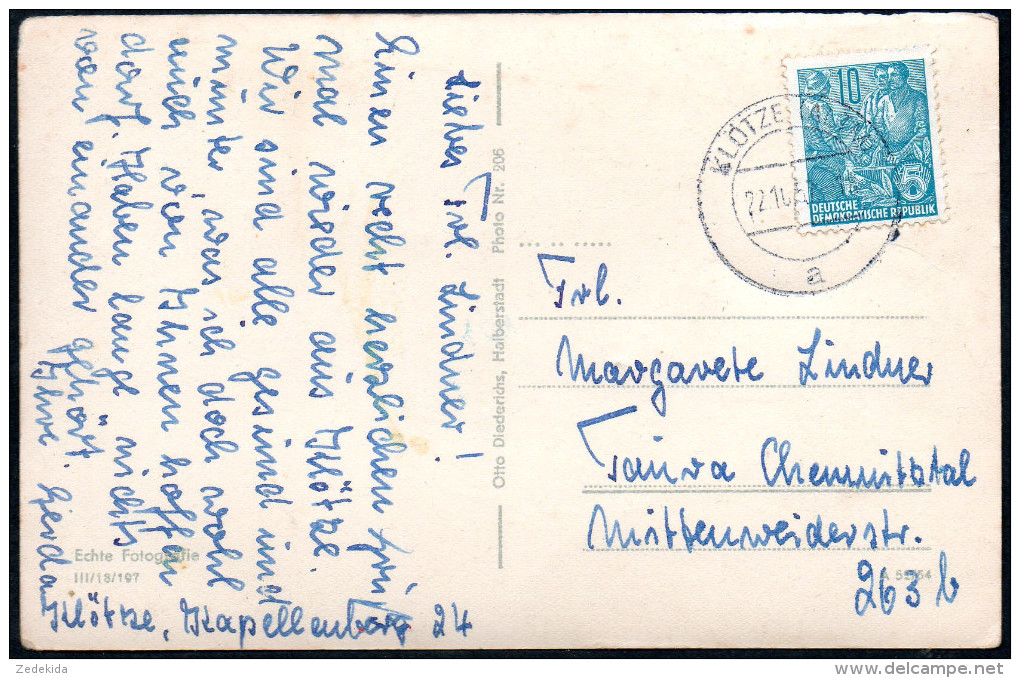 Liebes Frl. Lindner!
Einen recht herzlichen Gru
mal wieder aus Klötze.
Wir sind alle gesund und
munter, was ich doch wohl
auch von Ihnen hoffen
darf. Haben lange nichts
von einander gehört.
Ihre Gerda
Klötze, Kapellenberg 24
Echte Fotografie
III/18/197
Otto Diederichs, Halberstadt Photo Nr. 206
10
5
DEUTSCHE
DEMOKRATISCHE REPUBLIK
KLÖTZE
a
Frl.
Margarete Lindner
Taura Chemnitztal
Mittenweiderstr.
263 b
Zedekida
delcampe.net